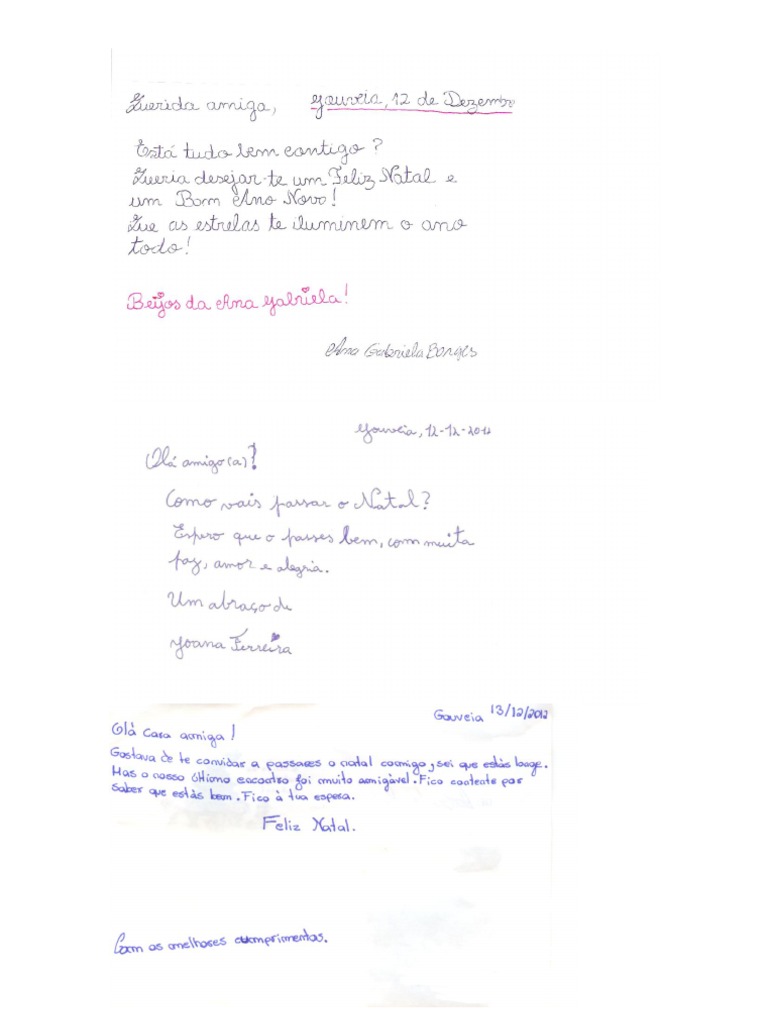 Querida amiga, Gouveia, 12 de Dezembro
Está tudo bem contigo?
Queria desejar-te um Feliz Natal e
um Bom Ano Novo!
Que as estrelas te iluminem o ano
todo!
Beijos da Ana Gabriela!
Ana Gabriela Borges
Gouveia, 12-12-2012
Olá amigo(a)!
Como vais passar o Natal?
Espero que o passes bem, com muita
paz, amor e alegria.
Um abraço de
Joana Ferreira
Gouveia 13/12/2012
Olá cara amiga!
Gostava de te convidar a passares o natal comigo, sei que estás longe.
Mas o nosso último encontro foi muito amigável. Fico contente por
saber que estás bem. Fico à tua espera.
Feliz Natal.
Com os melhores cumprimentos.